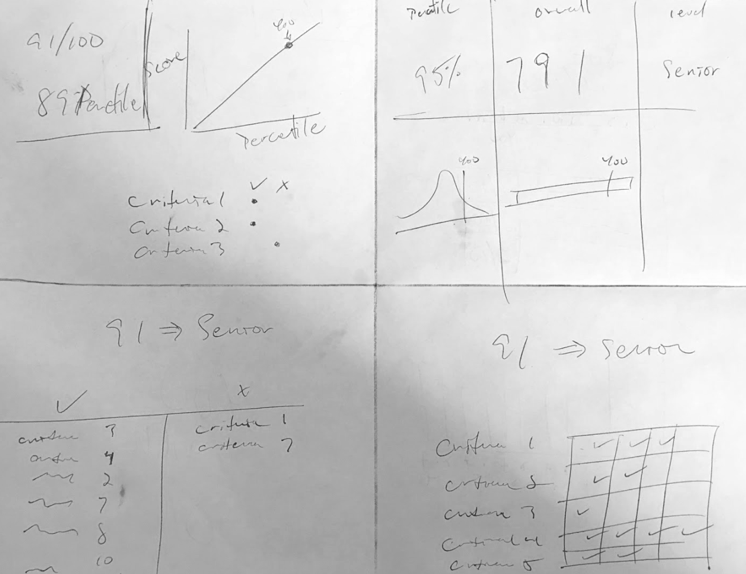 91/100
89 Percentile
Score
YOU
Percentile
✓ x
Criteria 1
Criteria 2
Criteria 3
Percentile overall level
95% 791 Senior
YOU YOU
91 ⇒ Senior
✓ x
criteria 3
criteria 4
2
7
8
10
criteria 1
criteria
91 ⇒ Senior
Criteria 1
Criteria 2
Criteria 3
Criteria 4
Criteria 5